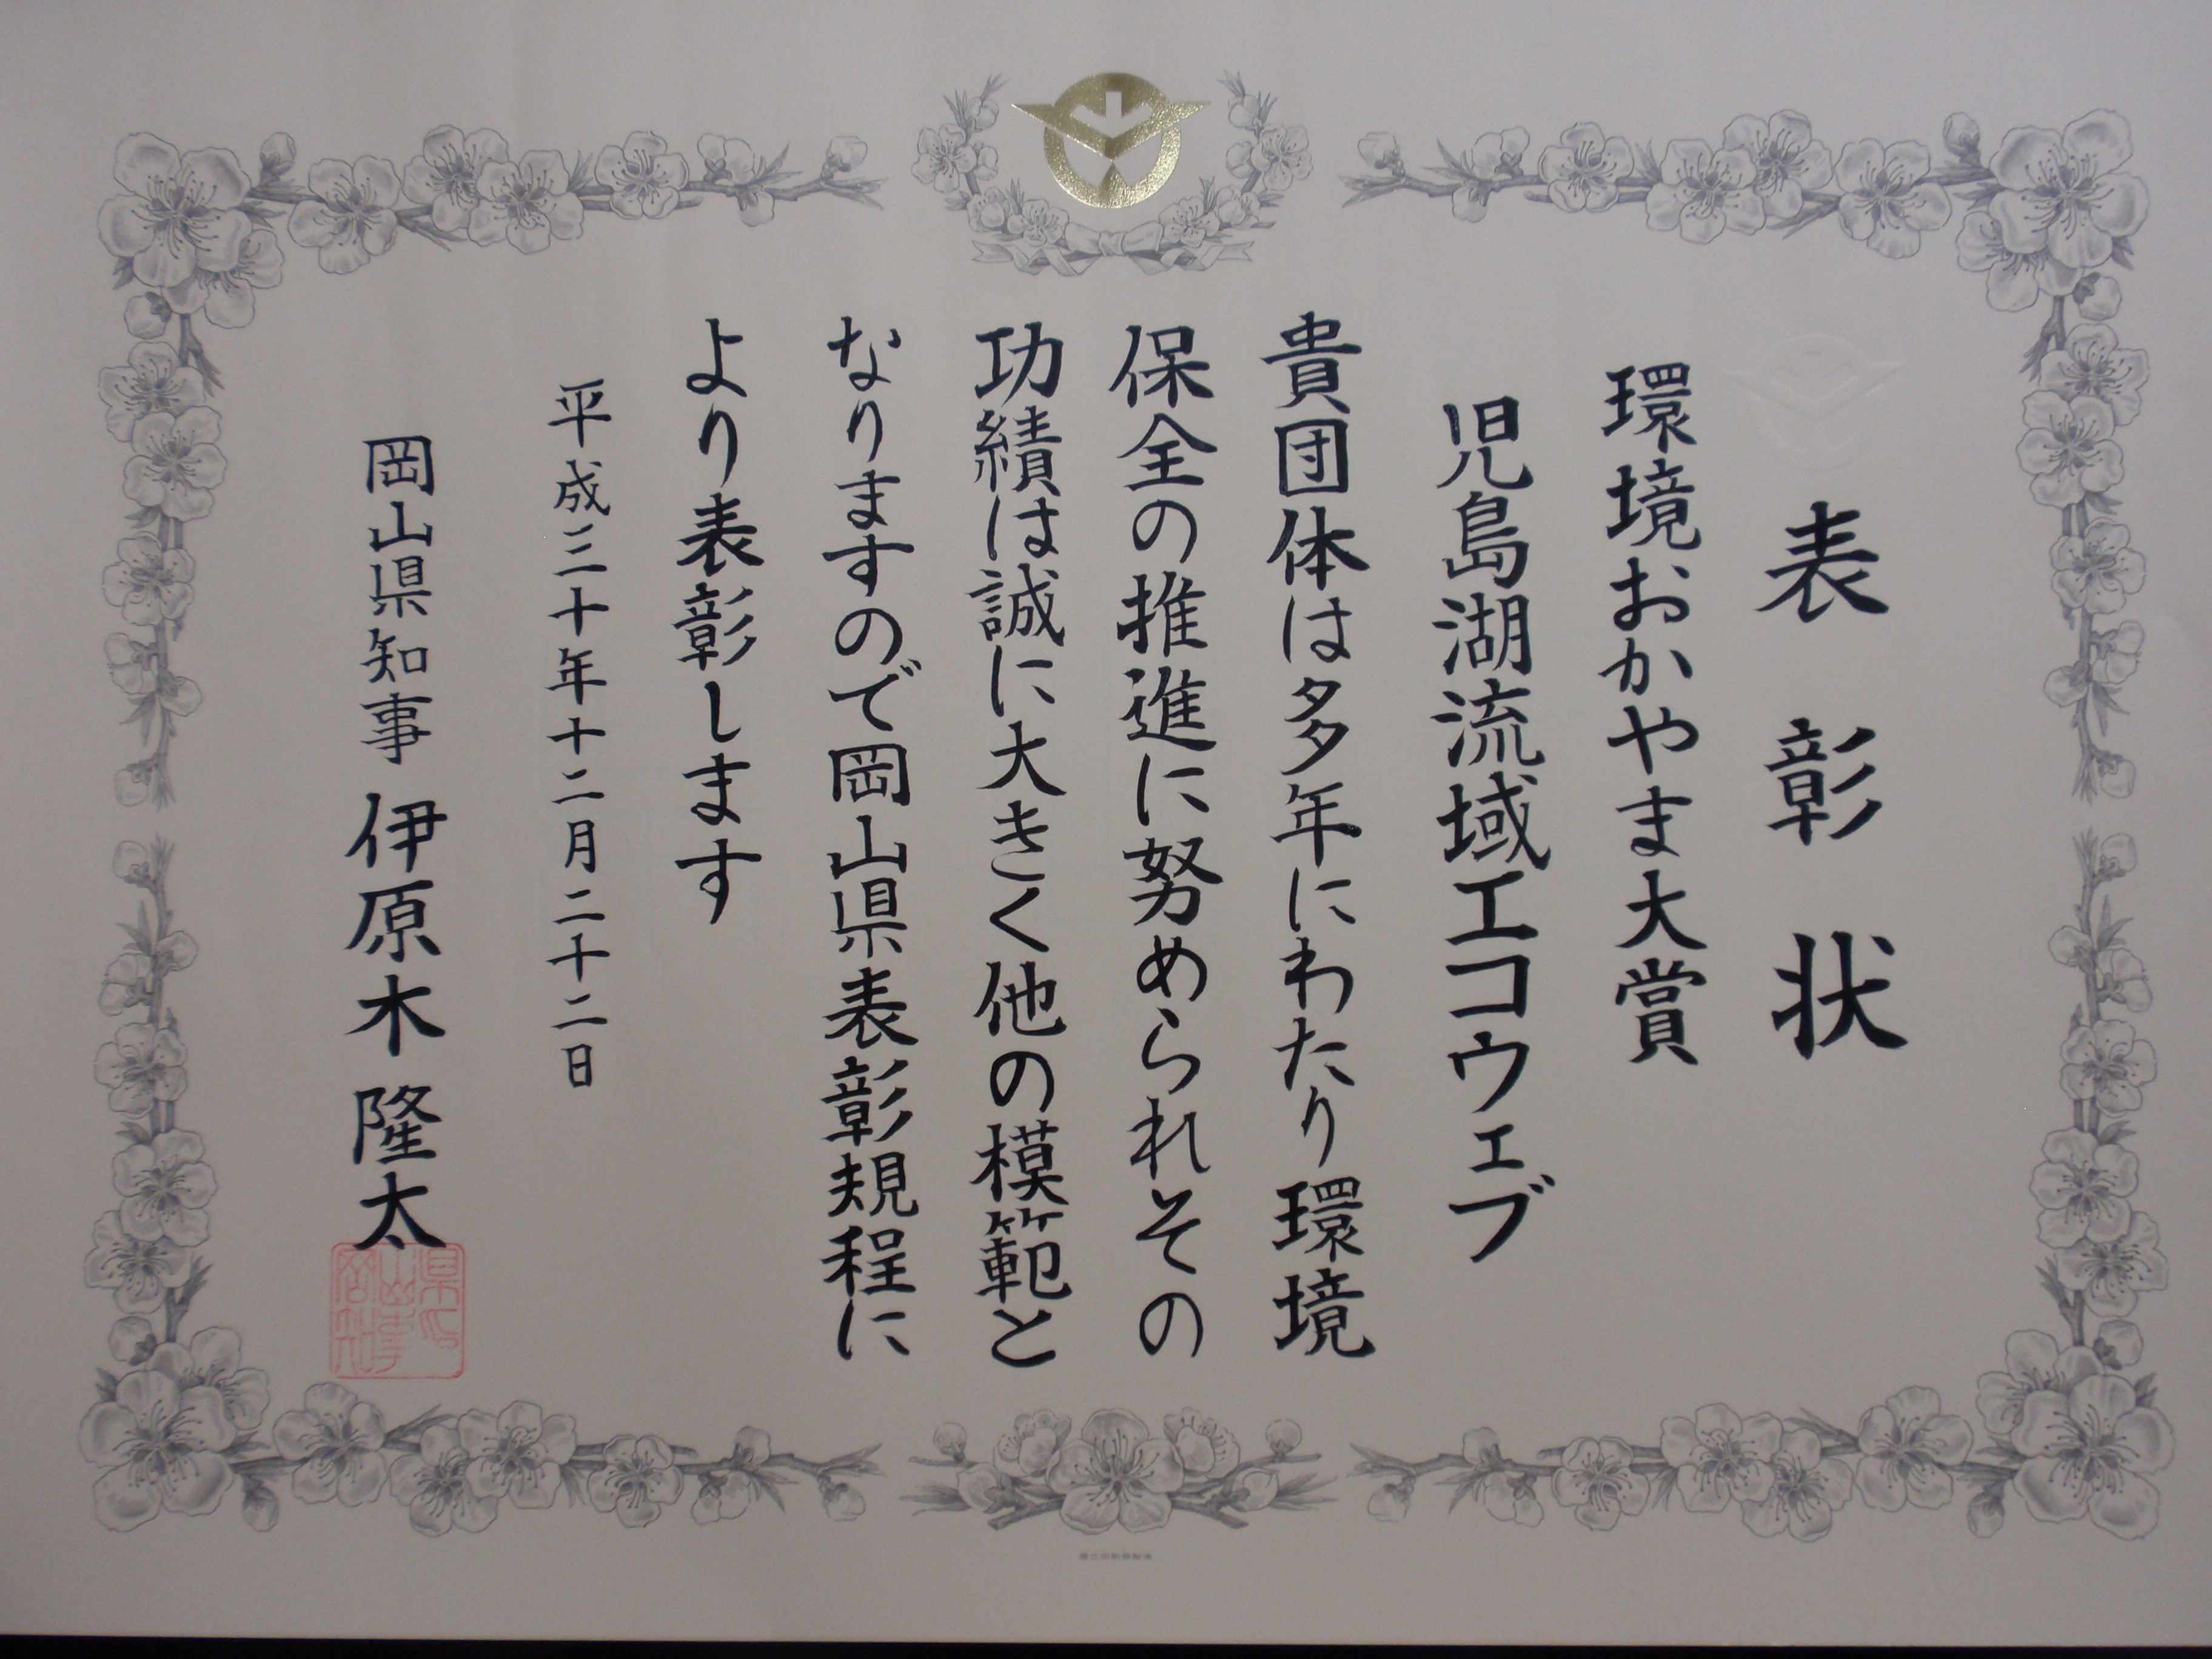 表彰状
環境おかやま大賞
児島湖流域エコウェブ
貴団体は多年にわたり環境
保全の推進に努められその
功績は誠に大きく他の模範と
なりますので岡山県表彰規程に
より表彰します
平成三十年十二月二十二日
岡山県知事 伊原木 隆太